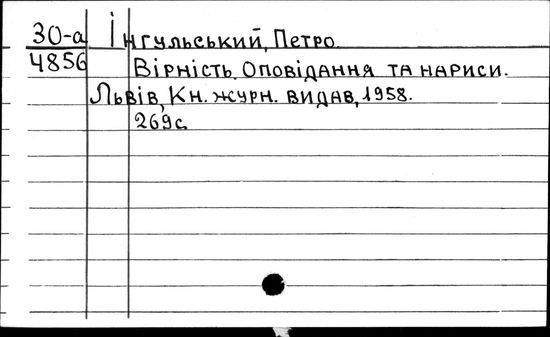 30-а Інгульський, Петро.
4856 Вірність. Оповідання та нариси.
Львів, Кн. журн. видав, 1958.
269с.